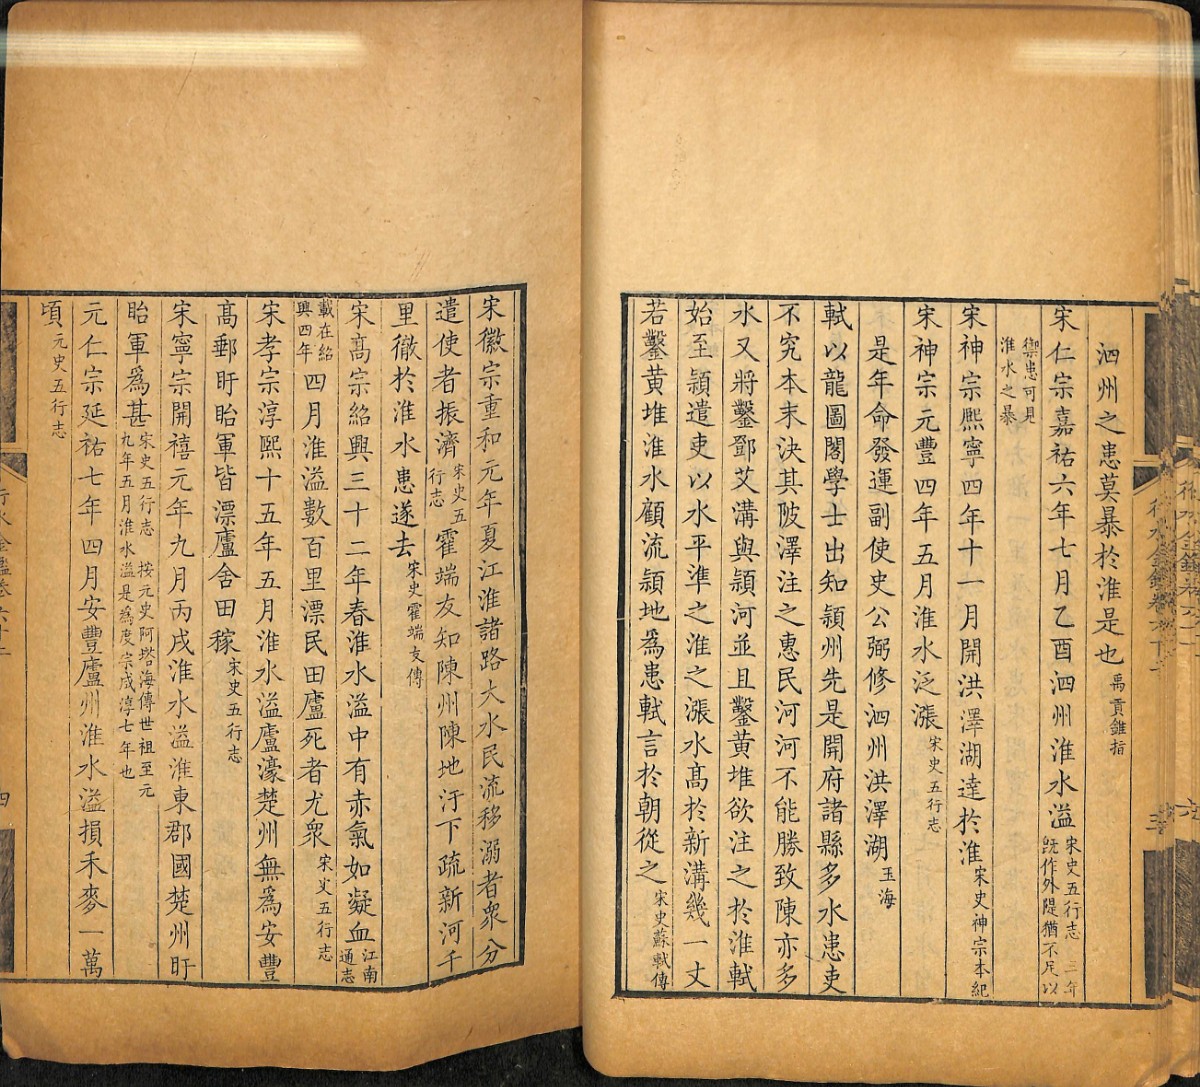 泗州之患莫暴於淮是也禹貢錐指
宋仁宗嘉祐六年七月乙酉泗州淮水溢宋史五行志 三年既作外隄猶不足以
禦患可見淮水之暴
宋神宗熙寧四年十一月開洪澤湖達於淮宋史神宗本紀
宋神宗元豐四年五月淮水泛漲宋史五行志
是年命發運副使史公弼修泗州洪澤湖玉海
軾以龍圖閣學士出知潁州先是開府諸縣多水患吏
不究本末決其陂澤注之惠民河河不能勝致陳亦多
水又將鑿鄧艾溝與潁河並且鑿黃堆欲注之於淮軾
始至潁遣吏以水平準之淮之漲水高於新溝幾一丈
若鑿黃堆淮水顧流潁地爲患軾言於朝從之宋史蘇軾傳
宋徽宗重和元年夏江淮諸路大水民流移溺者衆分
遣使者振濟宋史五行志 霍端友知陳州陳地汙下疏新河千
里徹於淮水患遂去宋史霍端友傳
宋高宗紹興三十二年春淮水溢中有赤氣如凝血江南通志
載在紹興四年四月淮溢數百里漂民田廬死者尤衆宋史五行志
宋孝宗淳熙十五年五月淮水溢廬濠楚州無爲安豐
高郵盱眙軍皆漂廬舍田稼宋史五行志
宋寧宗開禧元年九月丙戌淮水溢淮東郡國楚州盱
眙軍爲甚宋史五行志 按元史阿塔海傳世祖至元九年五月淮水溢是爲度宗咸淳七年也
元仁宗延祐七年四月安豐廬州淮水溢損禾麥一萬
頃元史五行志